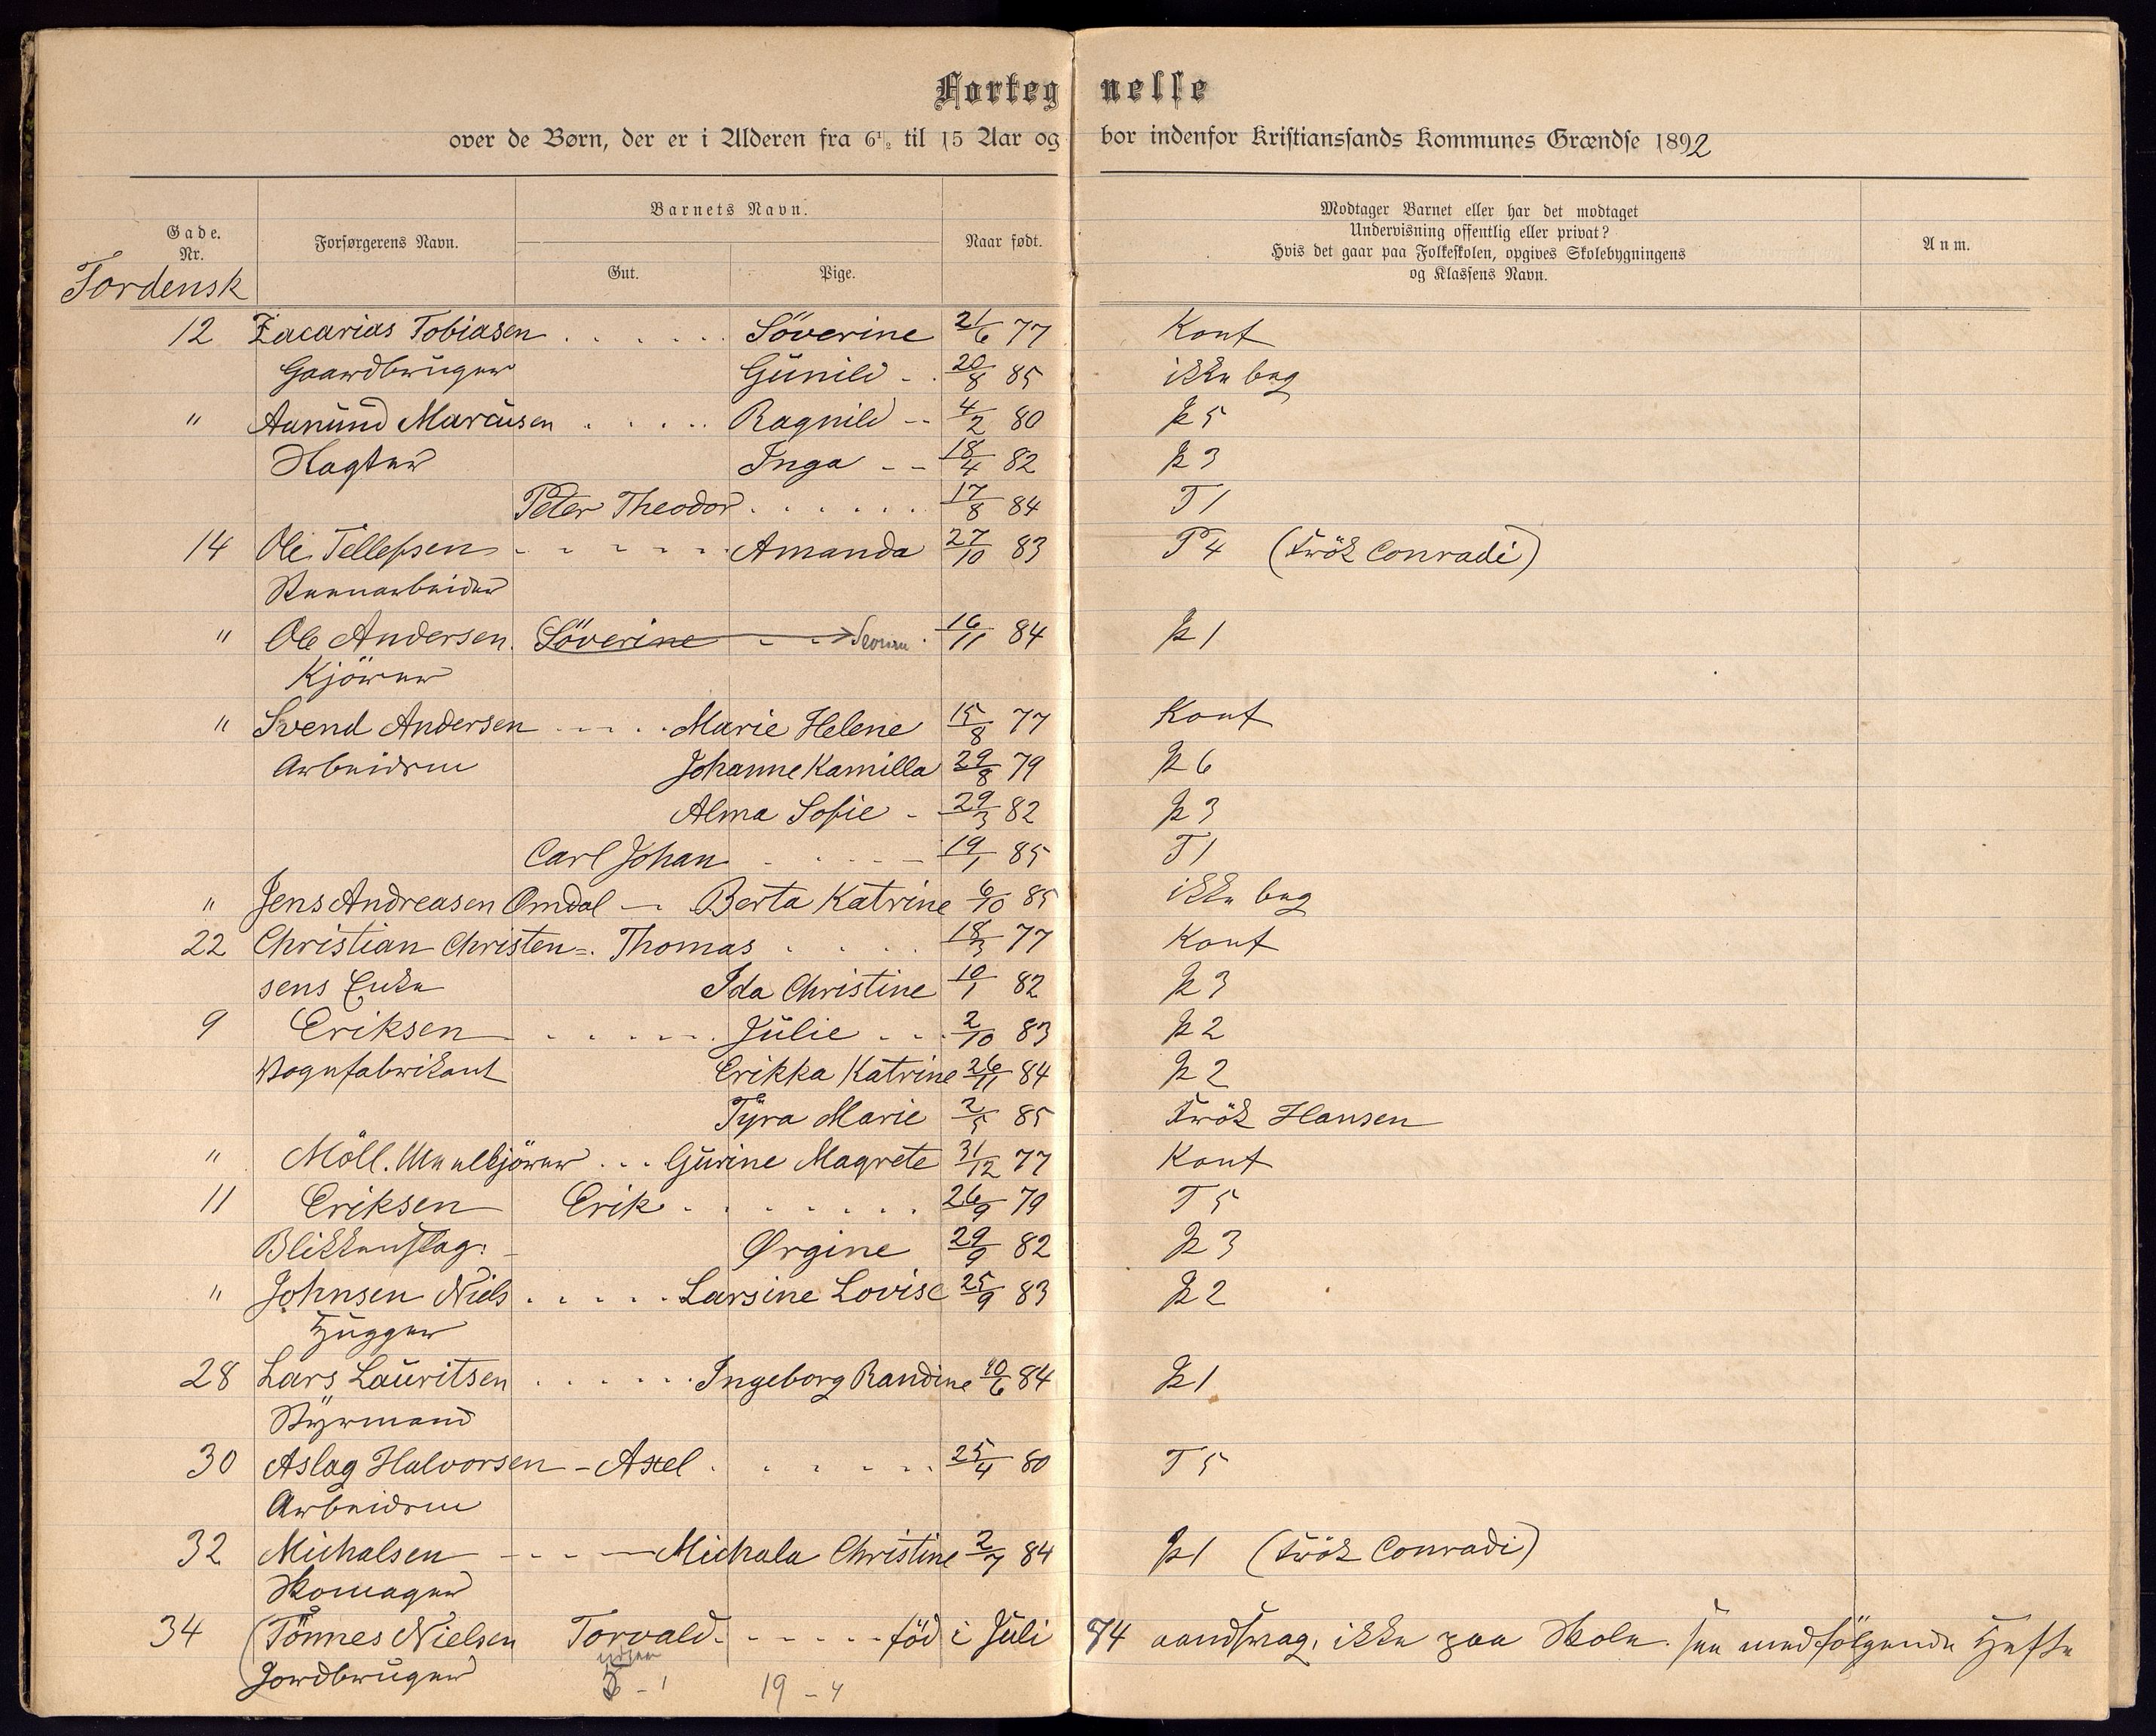 Fortegnelse
over de Børn, der er i Alderen fra 6½ til 15 Aar og bor indenfor Kristianssands Kommunes Grændse 1892
Gade. Nr.
Forsørgerens Navn.
Barnets Navn.
Gut.
Pige.
Naar født.
Modtager Barnet eller har det modtaget
Undervisning offentlig eller privat?
Hvis det gaar paa Folkeskolen, opgives Skolebygningens
og Klassens Navn.
Anm.
Tordensk
12 Zacarias Tobiasen Söverine 21/6 77 Konf
Gaardbruger Gunild 20/8 85 ikke beg
" Aanund Marcusen Ragnild 4/2 80 P 5
Slagter Inga 18/4 82 P 3
Peter Theodor 17/8 84 T 1
14 Ole Tellefsen Amanda 27/10 83 P 4 (Frök Conradi)
Stenarbeider
" Ole Andersen Söverine 16/11 84 P 1
Kjörer
" Svend Andersen Marie Helene 15/8 77 Konf
Arbeidsm Johanne Kamilla 29/8 79 P 6
Alma Sofie 29/3 82 P 3
Carl Johan 19/1 85 T 1
" Jens Andreasen Omdal Berta Katrine 6/10 85 ikke beg
22 Christian Christen= Thomas 18/3 77 Konf
sens Enke Ida Christine 10/1 82 P 3
9 Eriksen Julie 2/10 83 P 2
Vognfabrikant Erikka Katrine 26/11 84 P 2
Tyra Marie 2/5 85 Frök Hansen
" Möll. Gurine Magrete 31/12 77 Konf
11 Eriksen Erik 26/9 79 T 5
Blikkenslag: Ørgine 29/9 82 P 3
" Johnsen Niels Larsine Lovise 25/9 83 P 2
Hugger
28 Lars Lauritsen Ingeborg Randine 10/6 84 P 1
Styrmand
30 Aslag Halvorsen Axel 25/4 80 T 5
Arbeidsm
32 Michalsen Michala Christine 2/7 84 P 1 (Frök Conradi)
Skomager
34 (Tönnes Nielsen Torvald föd i Juli 74 aandsvag, ikke paa Skole. see medfölgende Hefte
Jordbruger - 1 19 - 4